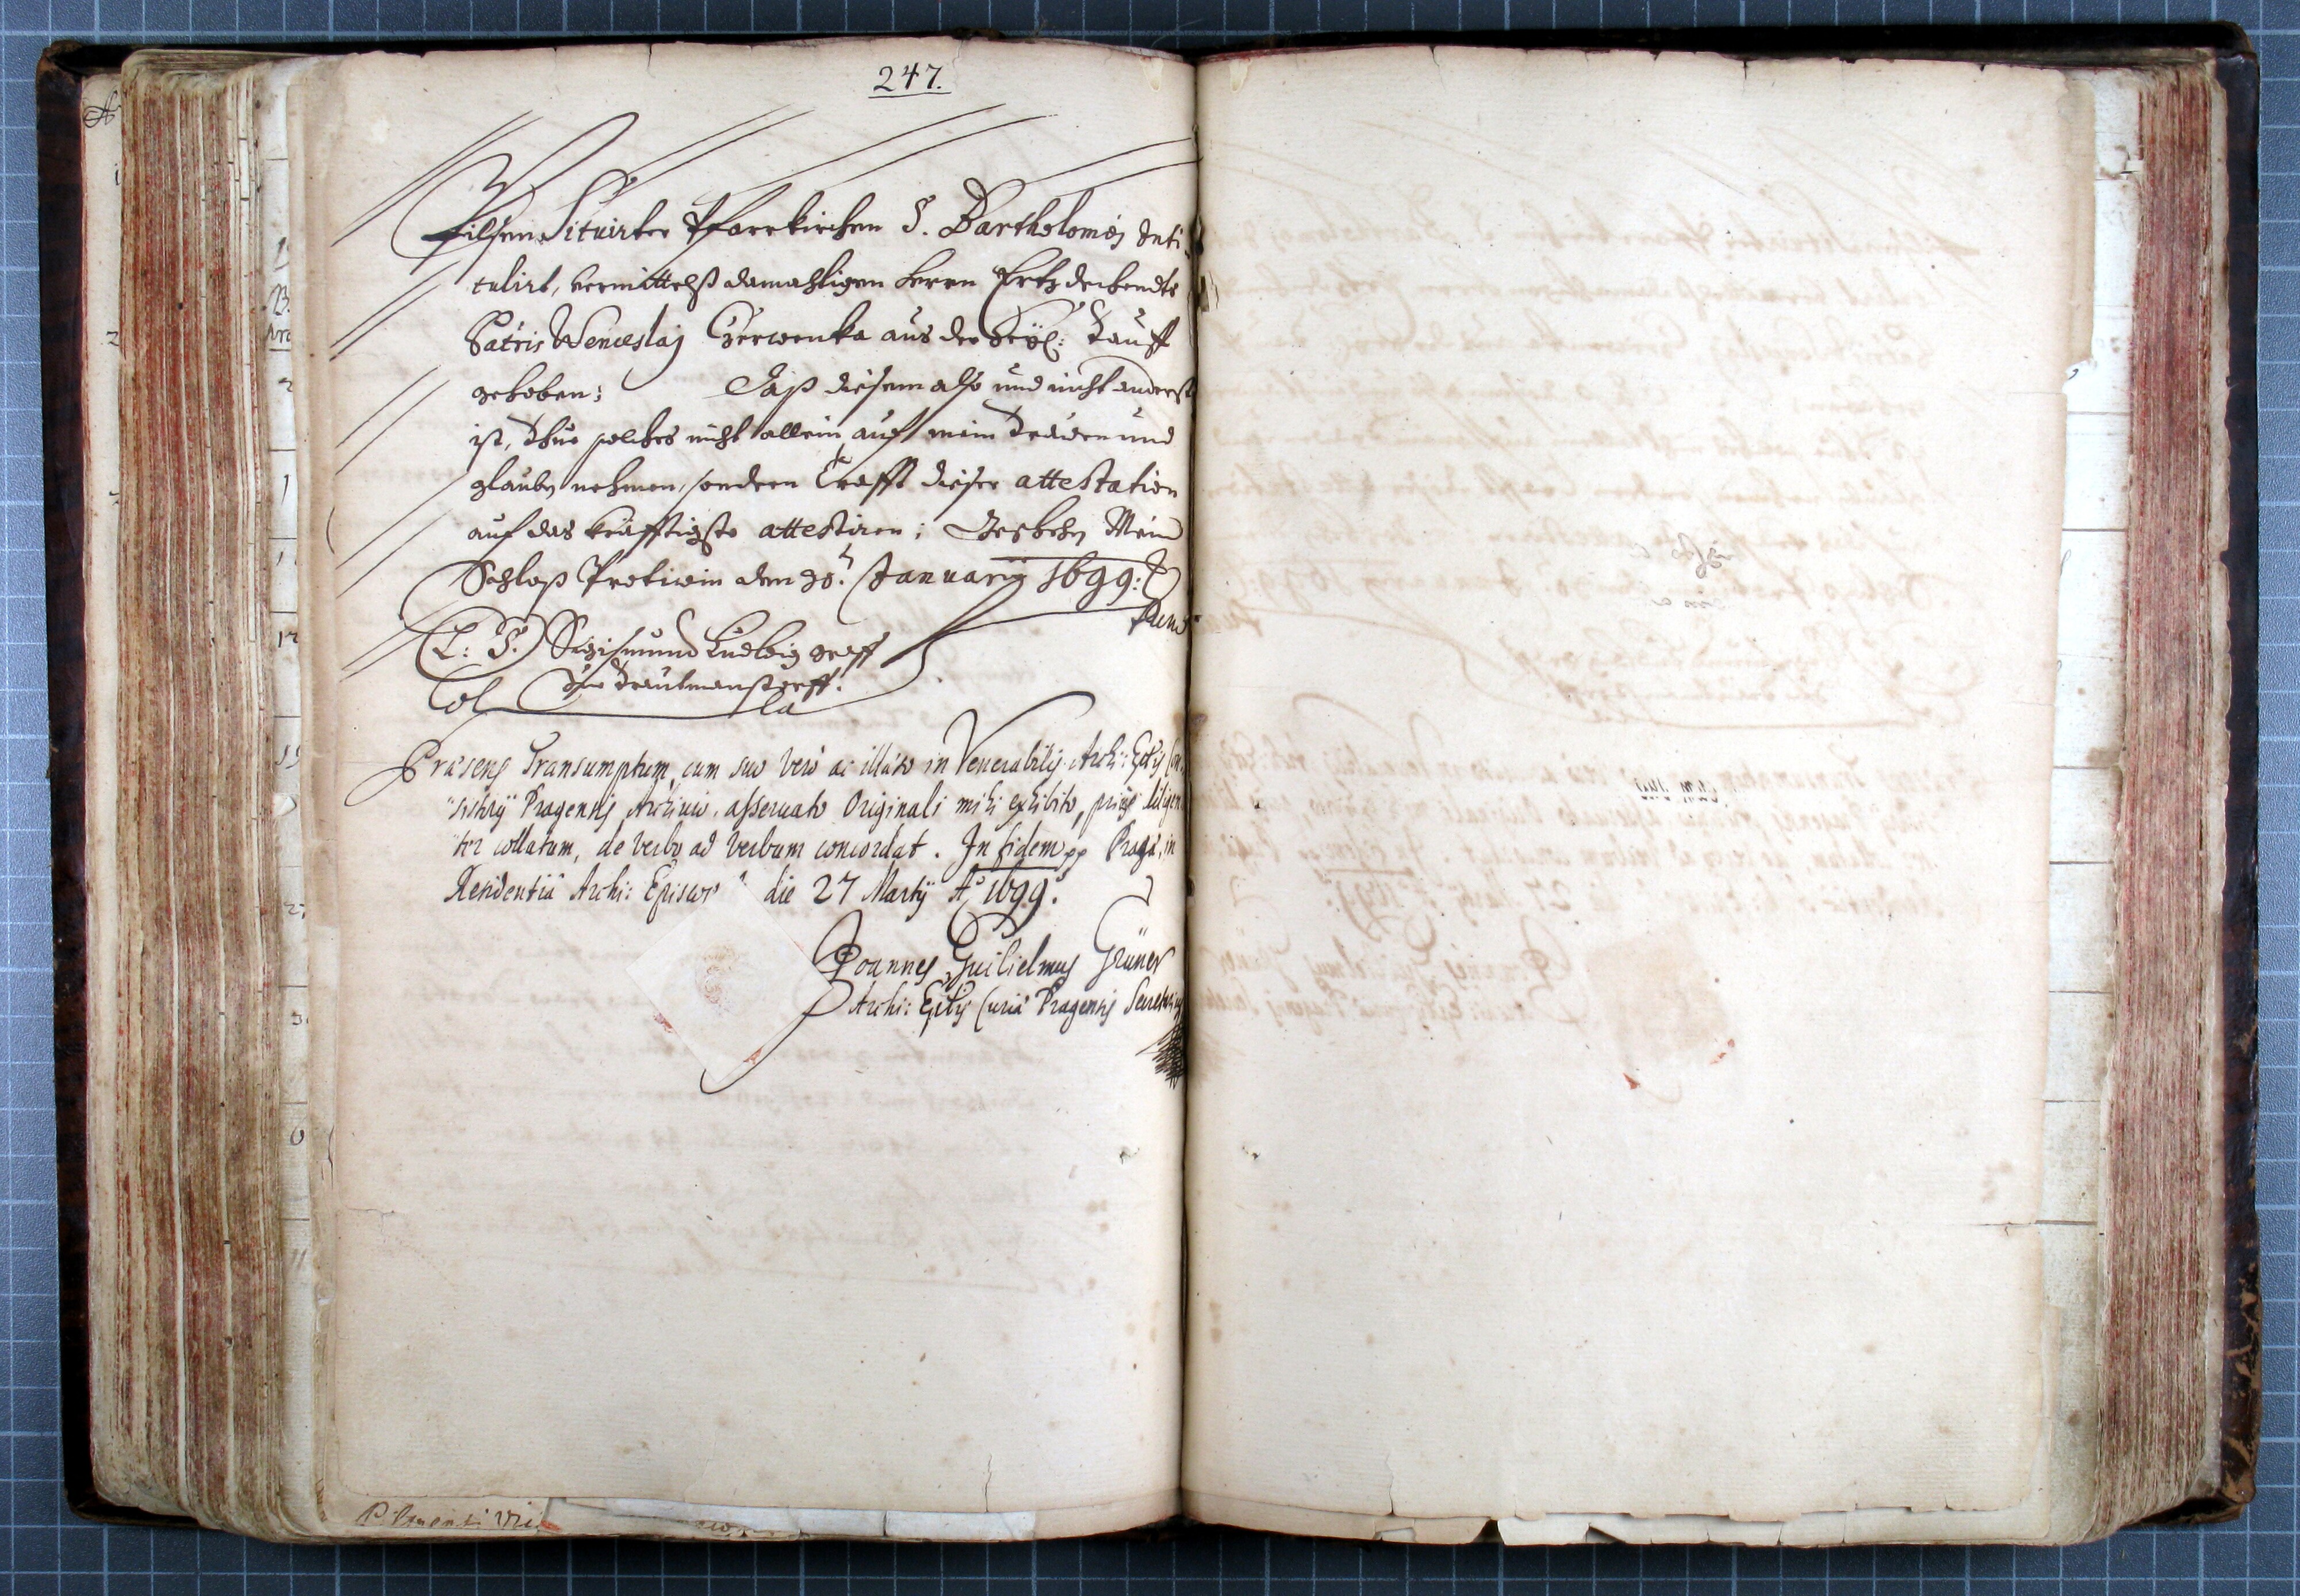 247.
Pilsen Situirter Pfarrkirchen S. Bartholomæj Inti
tulirt, vermittelß damahligen Herrn Ertzdechendts
Patris Wenceslaj Czerwenka aus der Heyl: Tauff
gehoben; Daß diesem also und nicht anderst
ist, Thue solches nicht allein auf mein Trauen und
glauben nehmen, sondern Crafft dieser attestation
auf das kräfftigste attestiren; Geschehen Mein
Schloß Protiwin den 30.t Januarij 1699:
(L: S.) Sigismund Ludwig graff
Von Trautmanstorff.
Col la
Præsens Transumptum cum suo vero ac illæso in Venerabilis Archi: Epalis Con
"sistorij Pragensis Archivio asservato Originali mihi exhibito, prius diligen
"ter collatum, de verbo ad verbum concordat. In fidem pp Pragæ, in
Residentia Archi: Episcop. die 27 Martij Aõ 1699.
Joannes Guilielmus Grüner
Archi: Epalis Curiæ Pragensis Secretarius